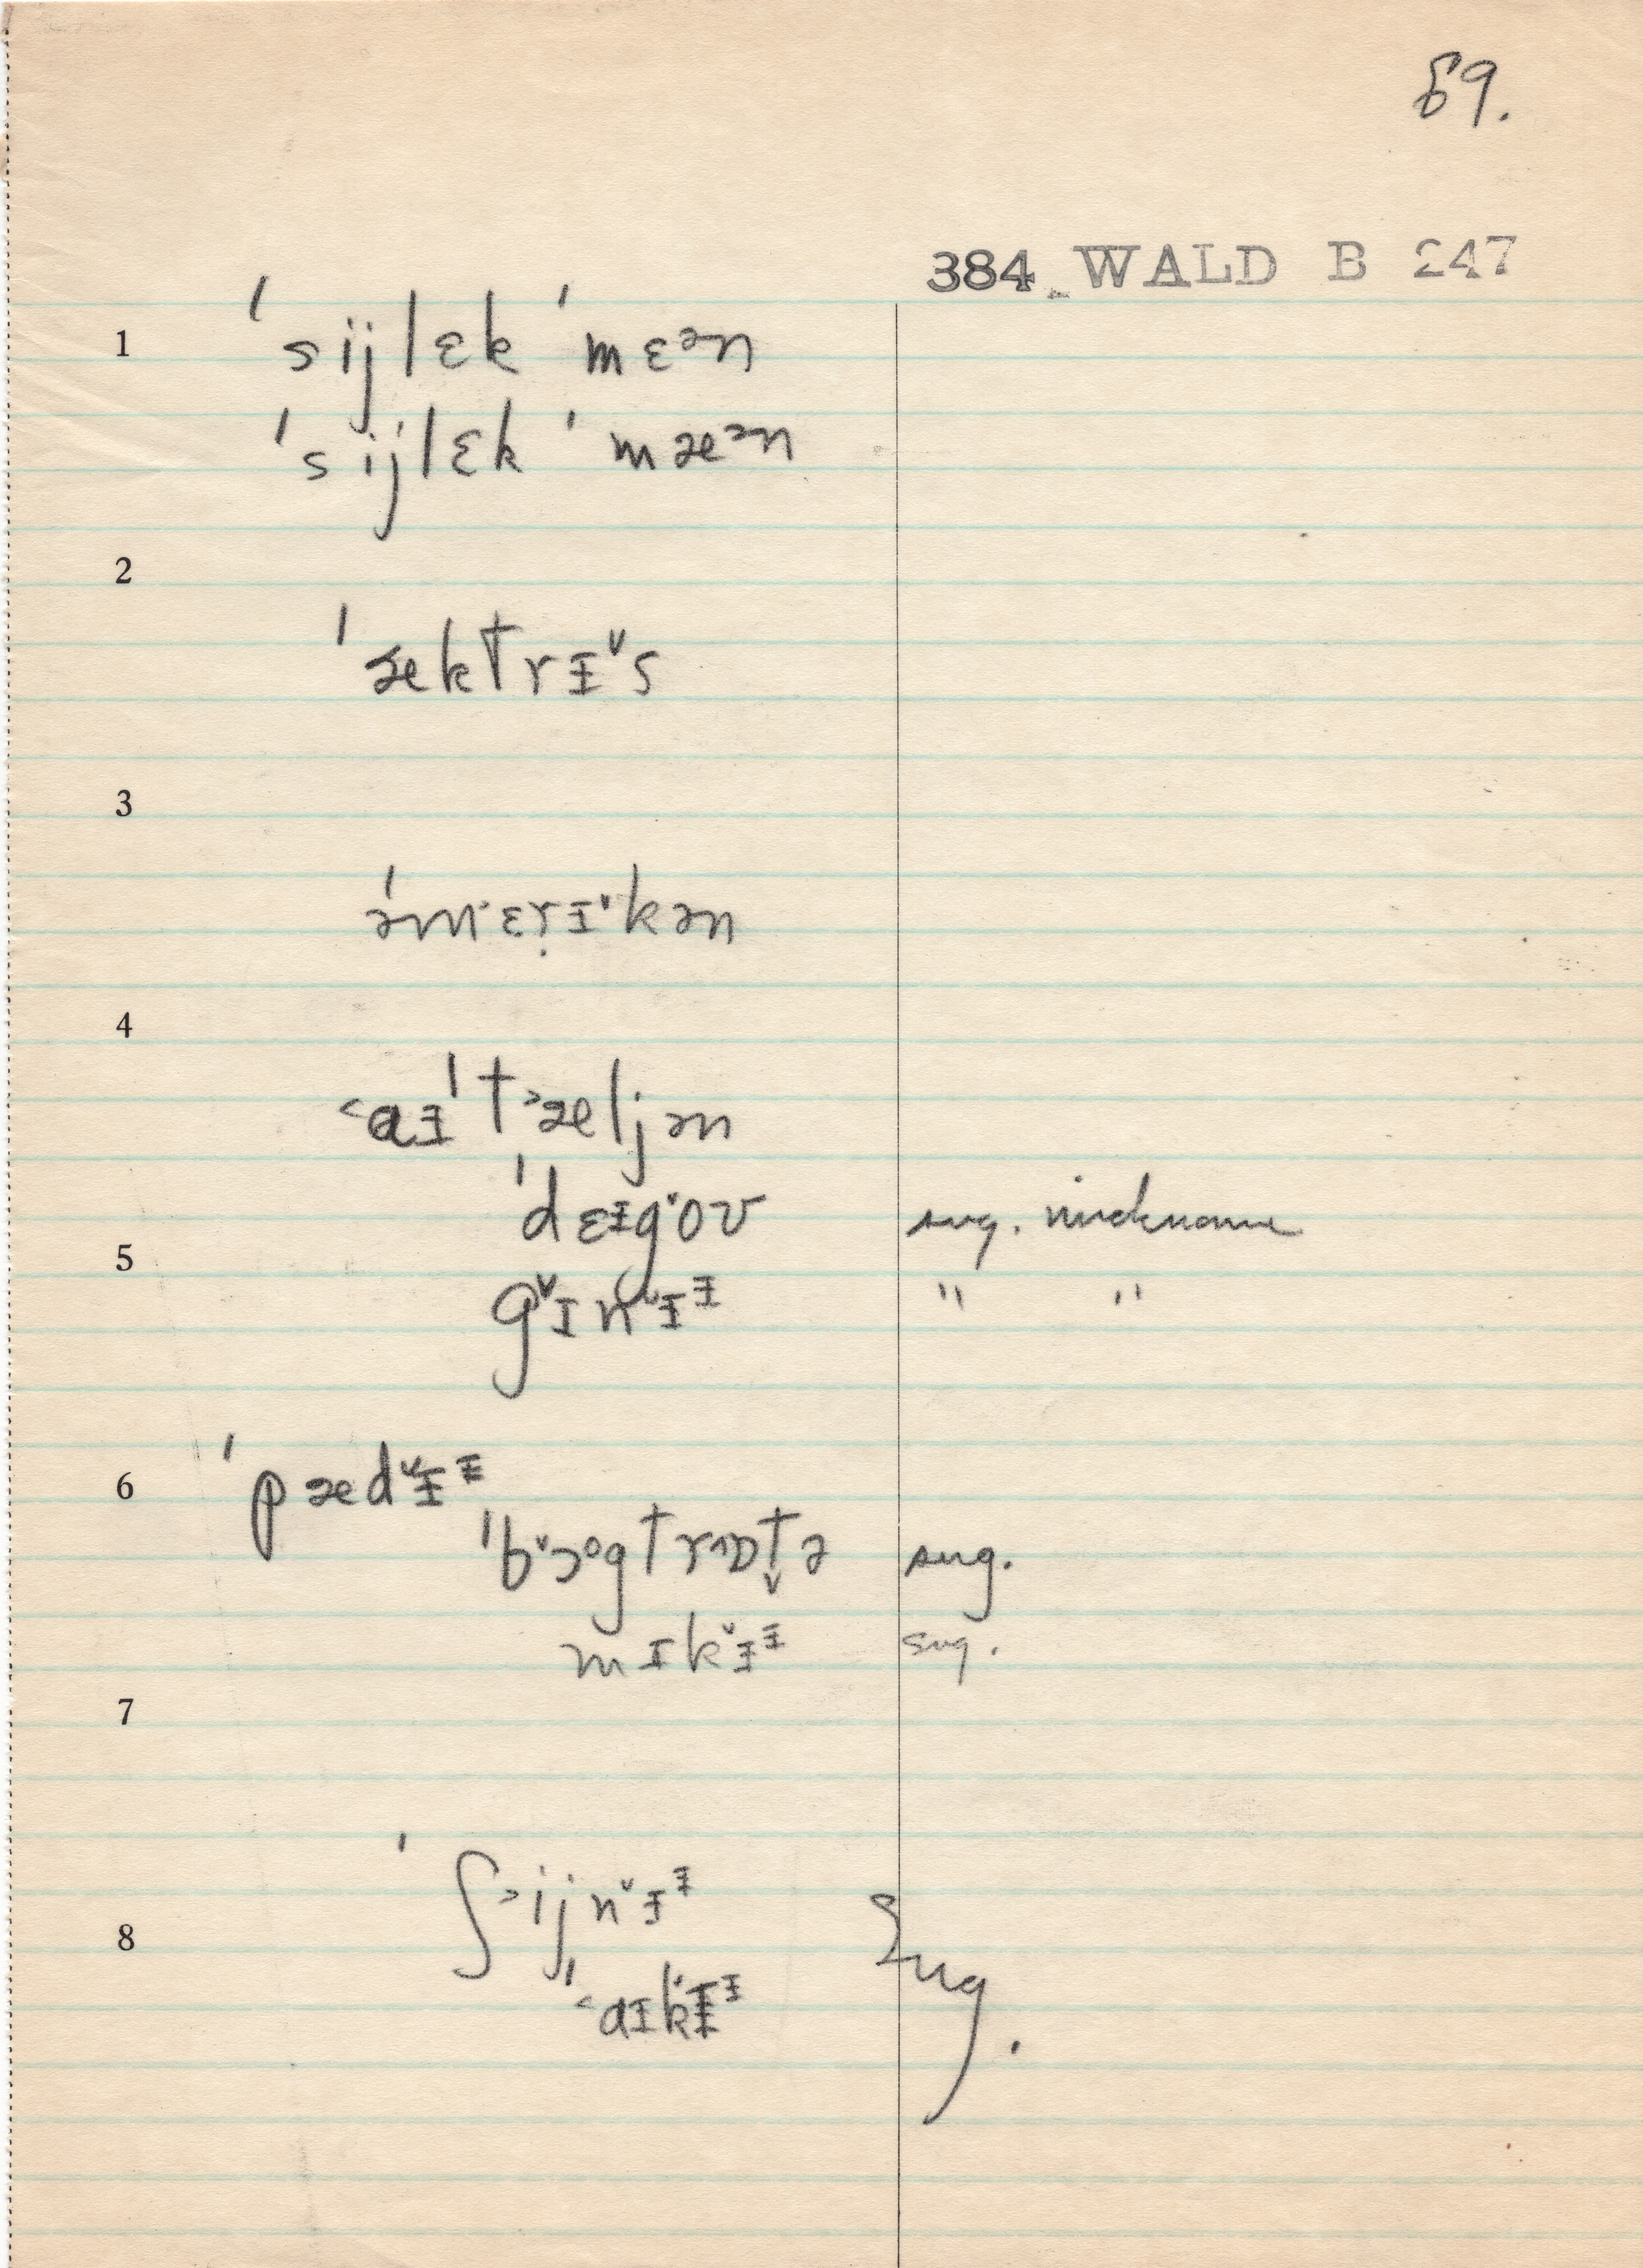 69.
384 WALD B 247
1 ˈsijlɛkˈmɛᵊn
ˈsijlɛkˈmæᵊn
2
ˈæktrɪ˅s
3
əˈm·ɛṛɪ˅kən
4
˂aɪˈt˃æljən
ˈdɛɪg˅oʊ sug. nickname
5
g˅ɪn˅ɪᶦ " "
6 ˈpæd˅ɪᶦ
ˈb˅ɔᵒgtrɒt̬ə sug.
mɪk˅ɪᶦ sug.
7
ˈʃ˃ijn˅ɪᶦ Sug.
8
ˈ˂aɪk˅ɪᶦ